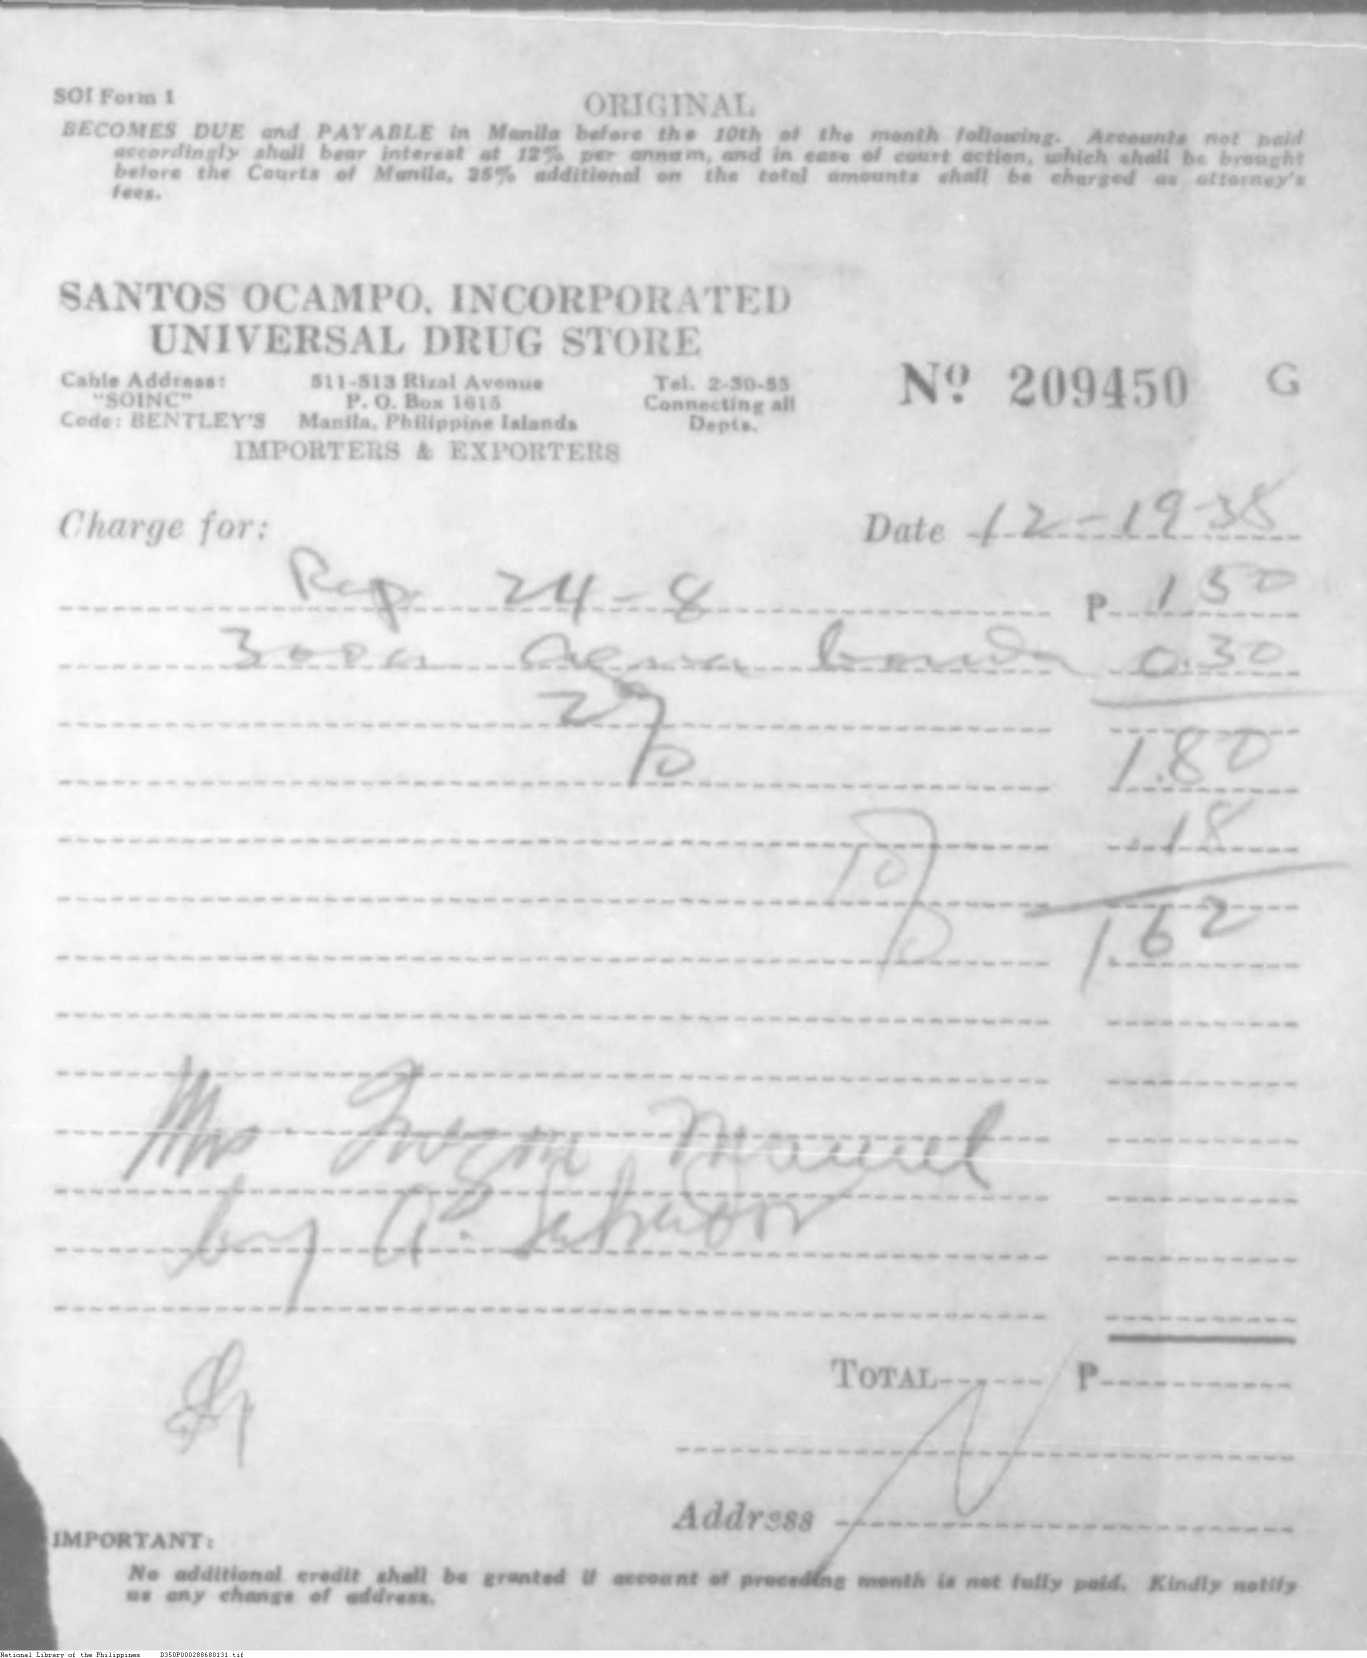 SOI Form 1
ORIGINAL
BECOMES DUE and PAYABLE in Manila before the 10th of the month following. Accounts not paid
accordingly shall bear interest at 12% per annum, and in case of court action, which shall be brought
before the Courts of Manila, 25% additional on the total amounts shall be charged as attorney's
fees.
SANTOS OCAMPO, INCORPORATED
UNIVERSAL DRUG STORE
Cable Address: 511-513 Rizal Avenue Tel. 2-30-55
"SOINC" P. O. Box 1615 Connecting all
Code: BENTLEY'S Manila, Philippine Islands Depts.
IMPORTERS & EXPORTERS
Nº 209450 G
Charge for: Date 12-19-38
Rep 24-8 P 1.50
300 Agua 0.30
2%
1.80
10% .18
1.62
Mrs. Manuel
by A. Salvador
TOTAL P
Address
IMPORTANT:
No additional credit shall be granted if account of preceding month is not fully paid. Kindly notify
us any change of address.
National Library of the Philippines D350P000288680131.tif